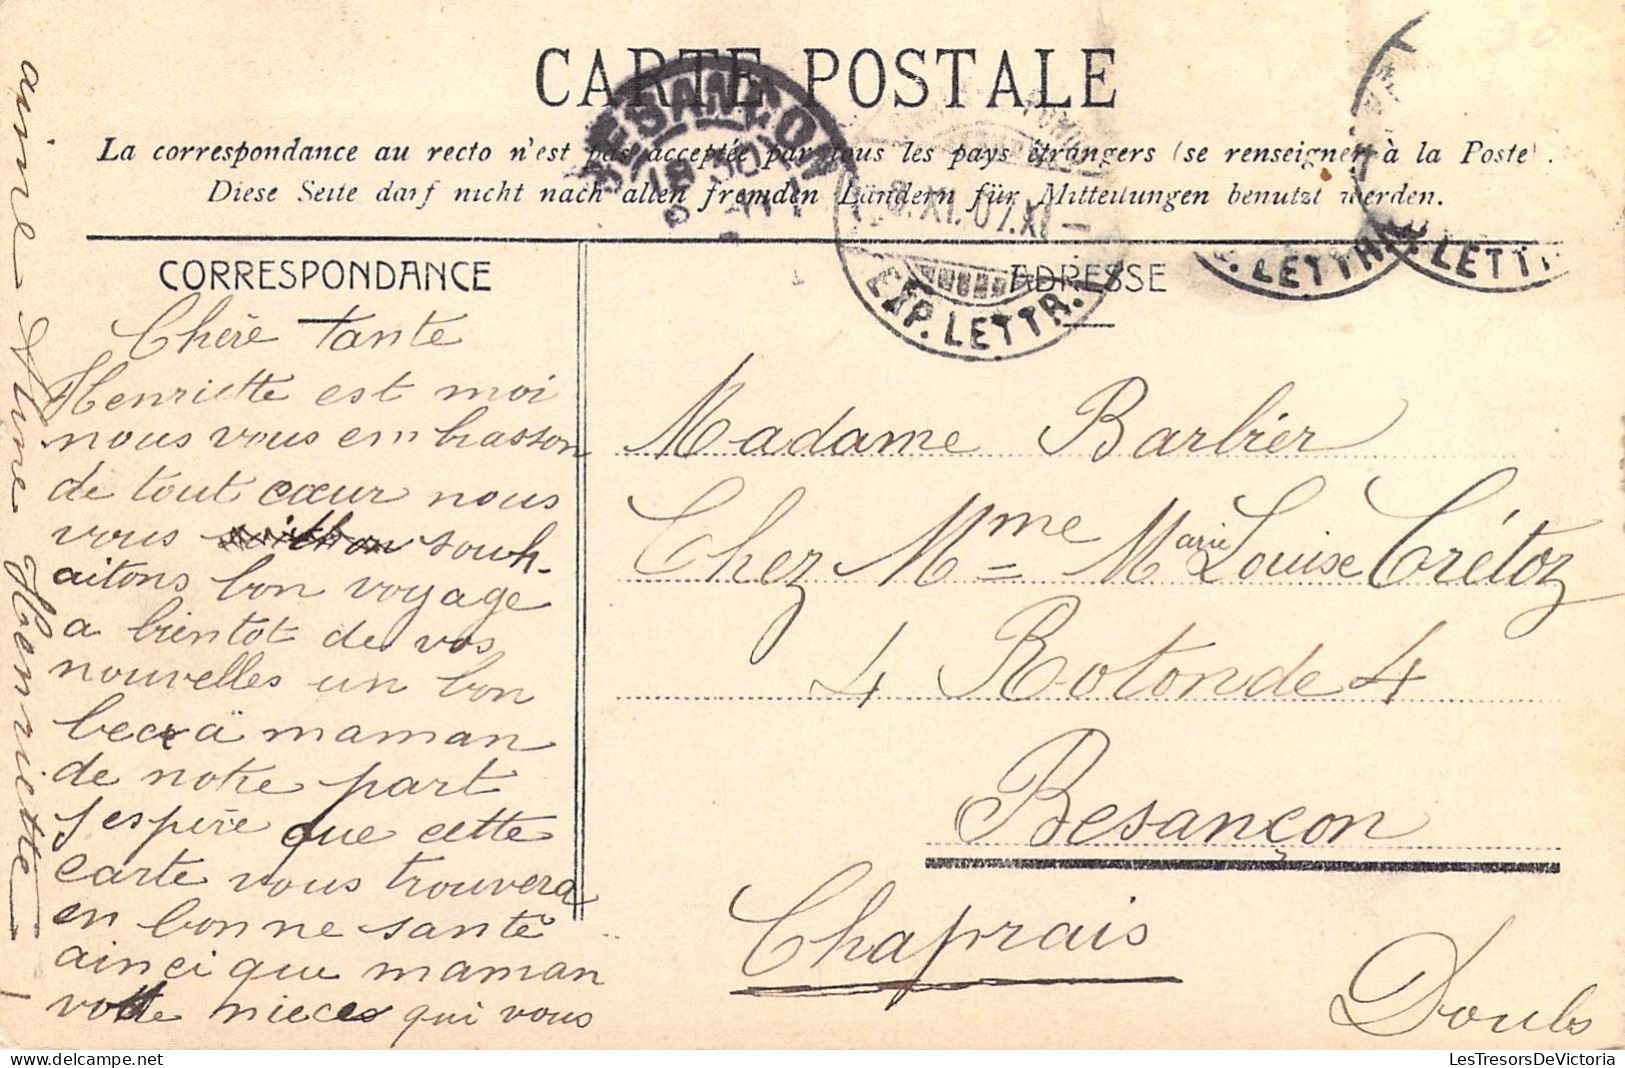 CARTE POSTALE
La correspondance au recto n'est pas acceptée par tous les pays étrangers (se renseigner à la Poste).
Diese Seite darf nicht nach allen fremden Ländern für Mitteilungen benutzt werden.
BESANÇON
EXP. LETTR.
P. LETTR.
LETTR.
CORRESPONDANCE
Chère tante
Henriette est moi
nous vous embrasson
de tout cœur nous
vous souh-
aitons bon voyage
a bientot de vos
nouvelles un bon
bec à maman
de notre part
j espère que cette
carte vous trouvera
en bonne santé
ainci que maman
votre nieces qui vous
aime Henriette
ADRESSE
Madame Barbier
Chez Mme Marie Louise Crétoz
4 Rotonde 4
Besançon
Chaprais
Doubs
LesTresorsDeVictoria